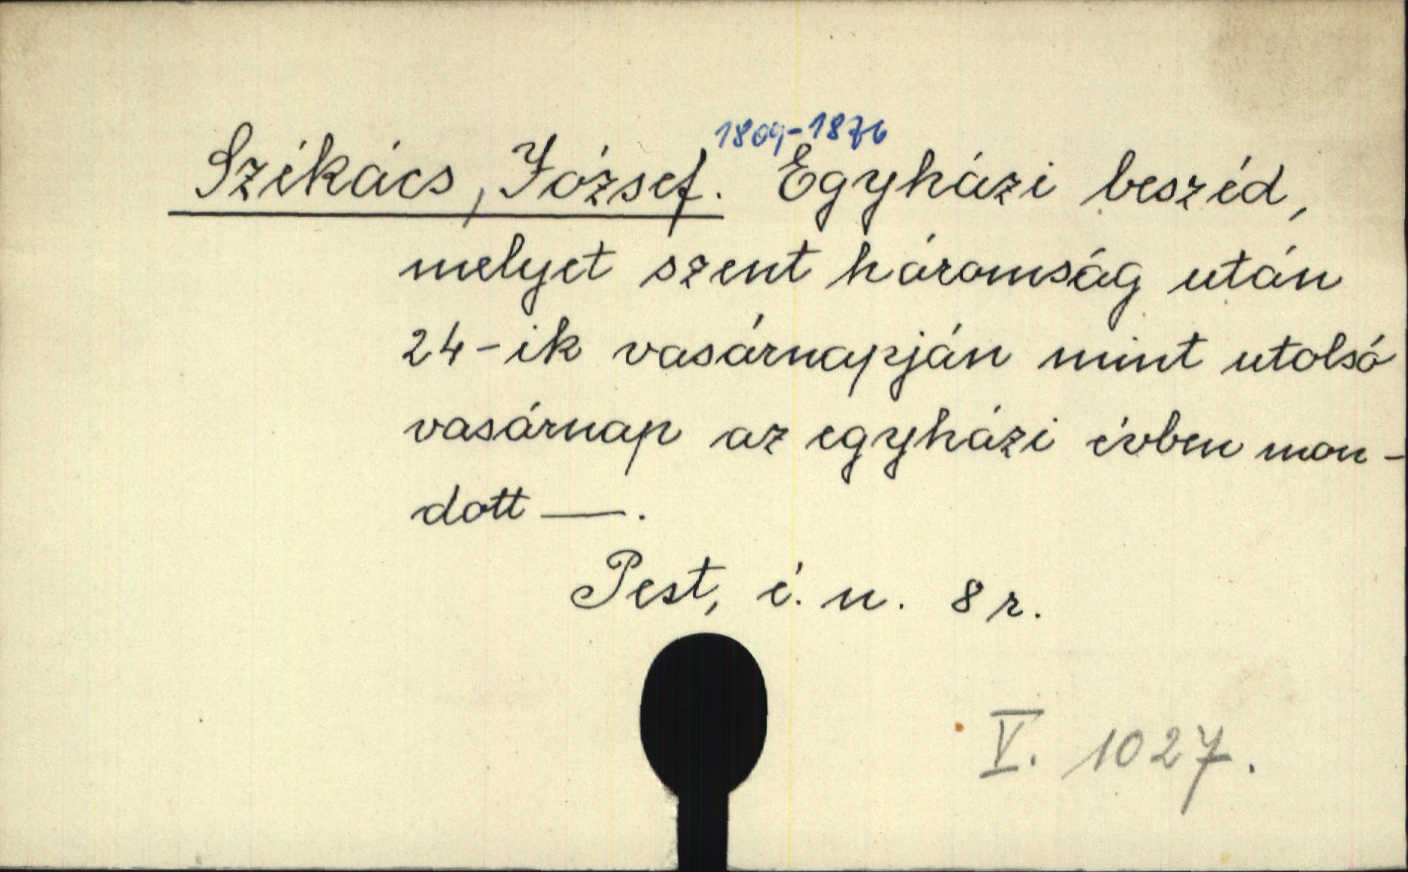 1809-1876
Székács, József. Egyházi beszéd,
melyet szent háromság után
24-ik vasárnapján mint utolsó
vasárnap az egyházi évben mon-
dott —.
Pest, é. n. 8 r.
V. 1027.